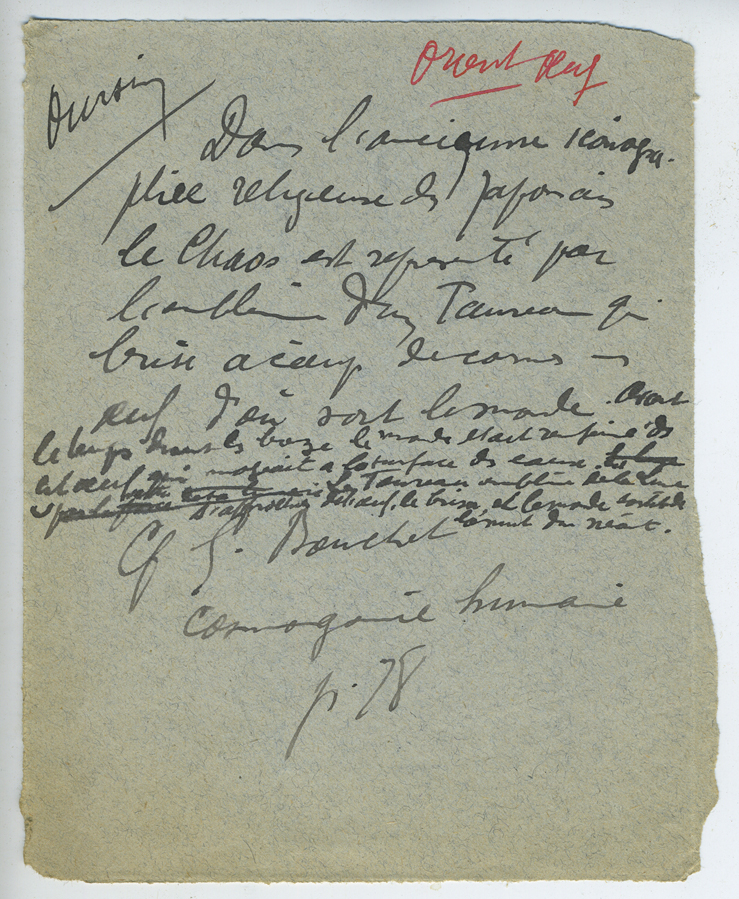 Orient œuf
Oursin
Dans l'ancienne iconogra-
phie religieuse des Japonais
le Chaos est représenté par
l'emblème d'un Taureau qui
brise à coup de cornes un
œuf d'où sort le monde. Avant
le temps disent les bonzes le monde était renfermé ds
cet œuf qui nageait à la surface des eaux.
Le Taureau emblème de la
s'approcha de l'œuf, le brisa, et le monde sortit de
la nuit du néant.
Cf G. Bouchet
Cosmogonie humaine
p. 78